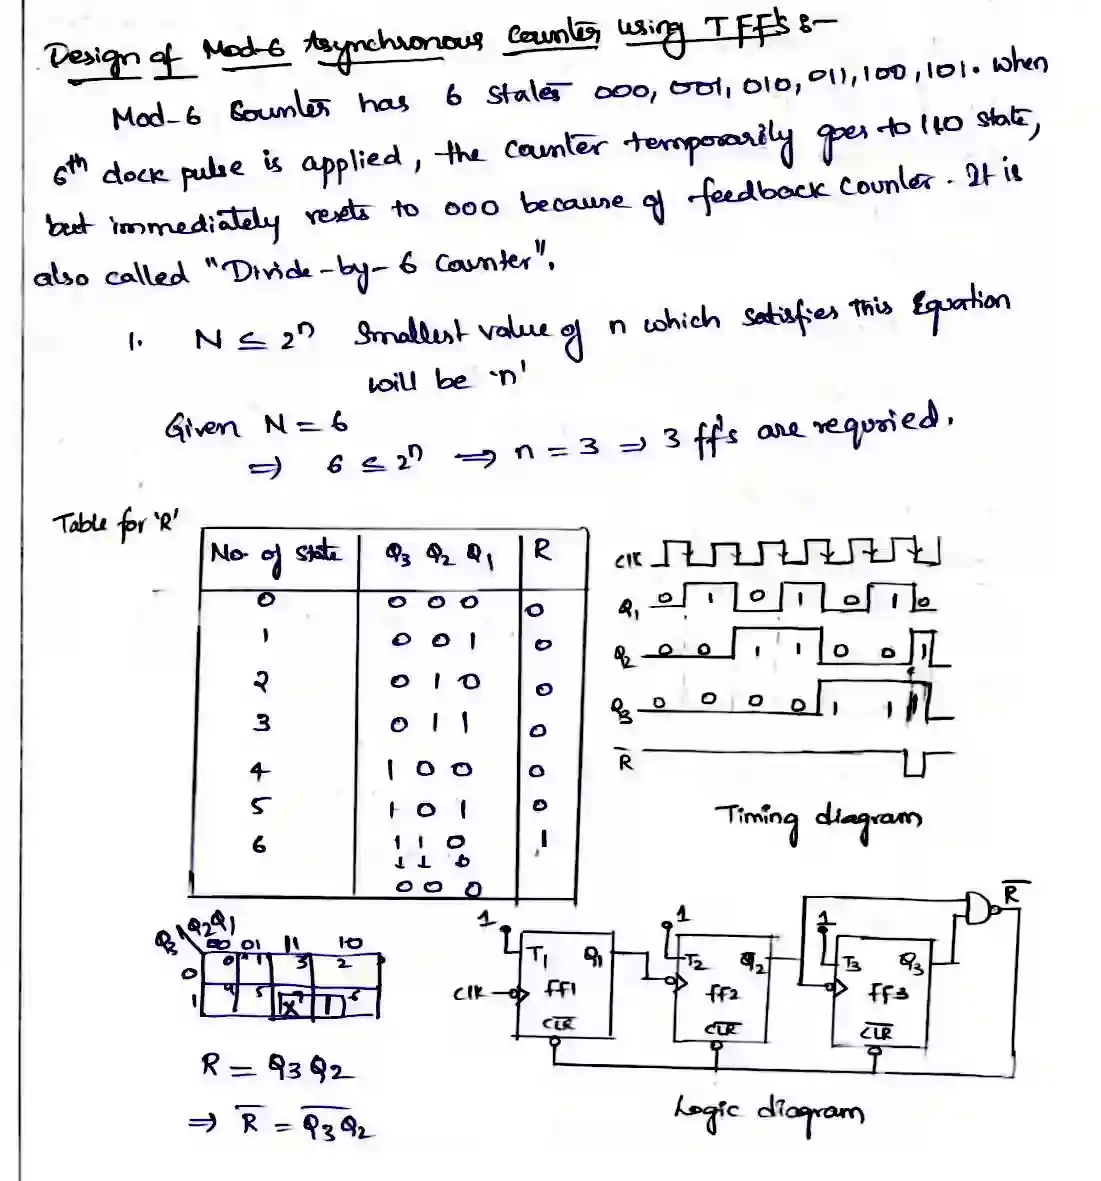 Design of Mod-6 Asynchronous Counter using T FF's :-
Mod-6 Counter has 6 states 000, 001, 010, 011, 100, 101. when
6th clock pulse is applied, the counter temporarily goes to 110 state,
but immediately resets to 000 because of feedback counter. It is
also called "Divide-by-6 counter".
1. N ≤ 2ⁿ Smallest value of n which satisfies this Equation
will be 'n'
Given N = 6
⇒ 6 ≤ 2ⁿ ⇒ n = 3 ⇒ 3 ff's are requried.
Table for 'R'
No. of state Q3 Q2 Q1 R
0 0 0 0 0
1 0 0 1 0
2 0 1 0 0
3 0 1 1 0
4 1 0 0 0
5 1 0 1 0
6 1 1 0 1
↓ ↓ ↓
0 0 0
clk
Q1 0 1 0 1 0 1 0
Q2 0 0 1 1 0 0 1
Q3 0 0 0 0 1 1 1
R̅
Timing diagram
Q3 Q2Q1
00 01 11 10
0 0 1 3 2
1 4 5 X 7 1 6
R = Q3 Q2
⇒ R̅ = \overline{Q3 Q2}
1 1 1 R̅
T1 Q1 T2 Q2 T3 Q3
clk ff1 ff2 ff3
\overline{CLR} \overline{CLR} \overline{CLR}
Logic diagram